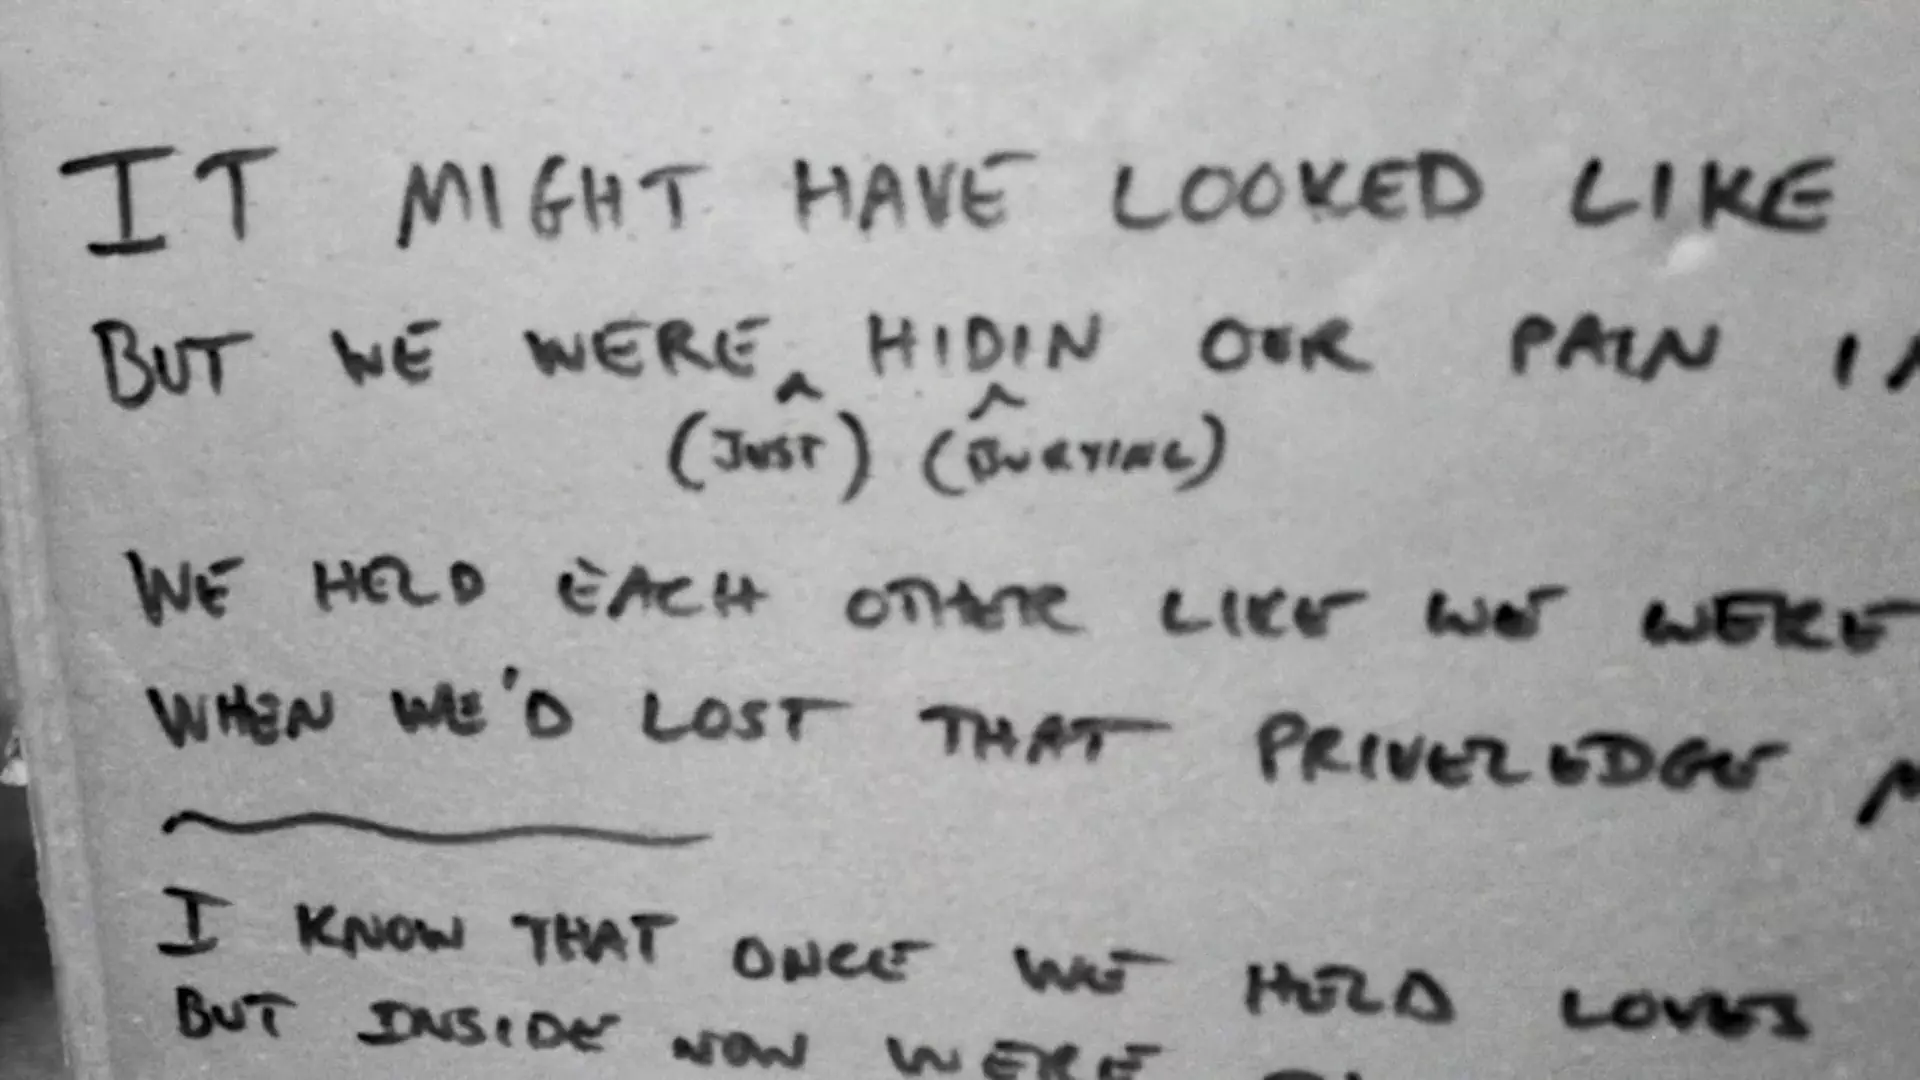 IT MIGHT HAVE LOOKED LIKE
BUT WE WERE HIDIN OUR PAIN
^ ^
(JUST) (BURYING)
WE HELD EACH OTHER LIKE WE WERE
WHEN WE'D LOST THAT PRIVELEDGE
I KNOW THAT ONCE WE HELD LOVES
BUT INSIDE NOW WERE